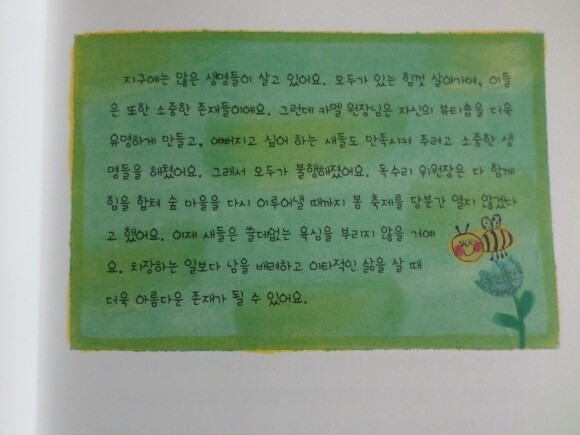 지구에는 많은 생명들이 살고 있어요. 모두가 있는 힘껏 살아가며, 이들
은 또한 소중한 존재들이에요. 그런데 카멜 원장님은 자신의 뷰티숍을 더욱
유명하게 만들고, 예뻐지고 싶어 하는 새들도 만족시켜 주려고 소중한 생
명들을 해쳤어요. 그래서 모두가 불행해졌어요. 독수리 위원장은 다 함께
힘을 합쳐 숲 마을을 다시 이루어낼 때까지 봄 축제를 당분간 열지 않겠다
고 했어요. 이제 새들은 쓸데없는 욕심을 부리지 않을 거예
요. 치장하는 일보다 남을 배려하고 이타적인 삶을 살 때
더욱 아름다운 존재가 될 수 있어요.